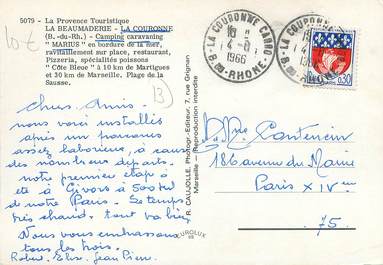 5079 - La Provence Touristique
LA BEAUMADERIE - LA COURONNE
(B.-du-Rh.) - Camping caravaning
"MARIUS" en bordure de la mer,
ravitaillement sur place, restaurant,
Pizzeria, spécialités poissons
"Côte Bleue" à 10 km de Martigues
et 30 km de Marseille, Plage de la
Sausse.
10€
13
Chers Amis -
nous voici installés
après un parcours
assez laborieux, à cause
des nombreux départs.
notre première étape a
été à Givors à 500 km
de notre Paris. Le temps
très chaud. tout va bien
Nous vous embrassons
tous les trois.
Jean Pierre
R. CAUJOLLE, Photogr-Editeur, 7, rue Grignan
Marseille - Reproduction interdite
EUROLUX
LA COURONNE CARRO
14-8
1966
B. DU RHONE
LA COURONNE CARRO
14-8
B. DU RHONE
0,30
186 avenue du Maine
Paris XIVème
75.